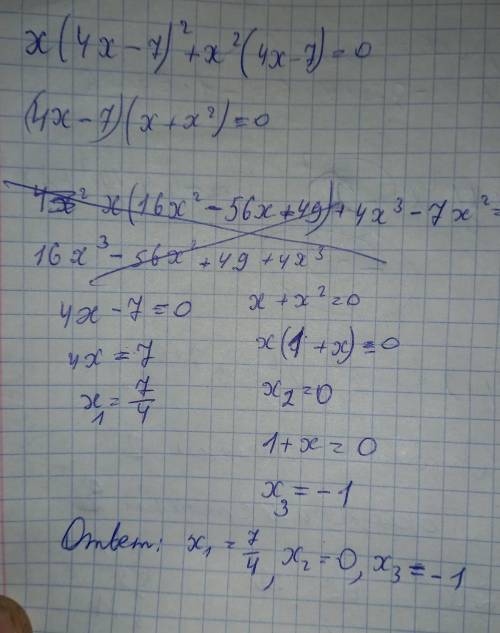 x(4x-7)²+x²(4x-7)=0
(4x-7)(x+x²)=0
4x² x(16x²-56x+49)+4x³-7x²=
16x³-56x²+49+4x³
4x-7=0
4x=7
x₁=7/4
x+x²=0
x(1+x)=0
x₂=0
1+x=0
x₃=-1
Ответ: x₁=7/4, x₂=0, x₃=-1